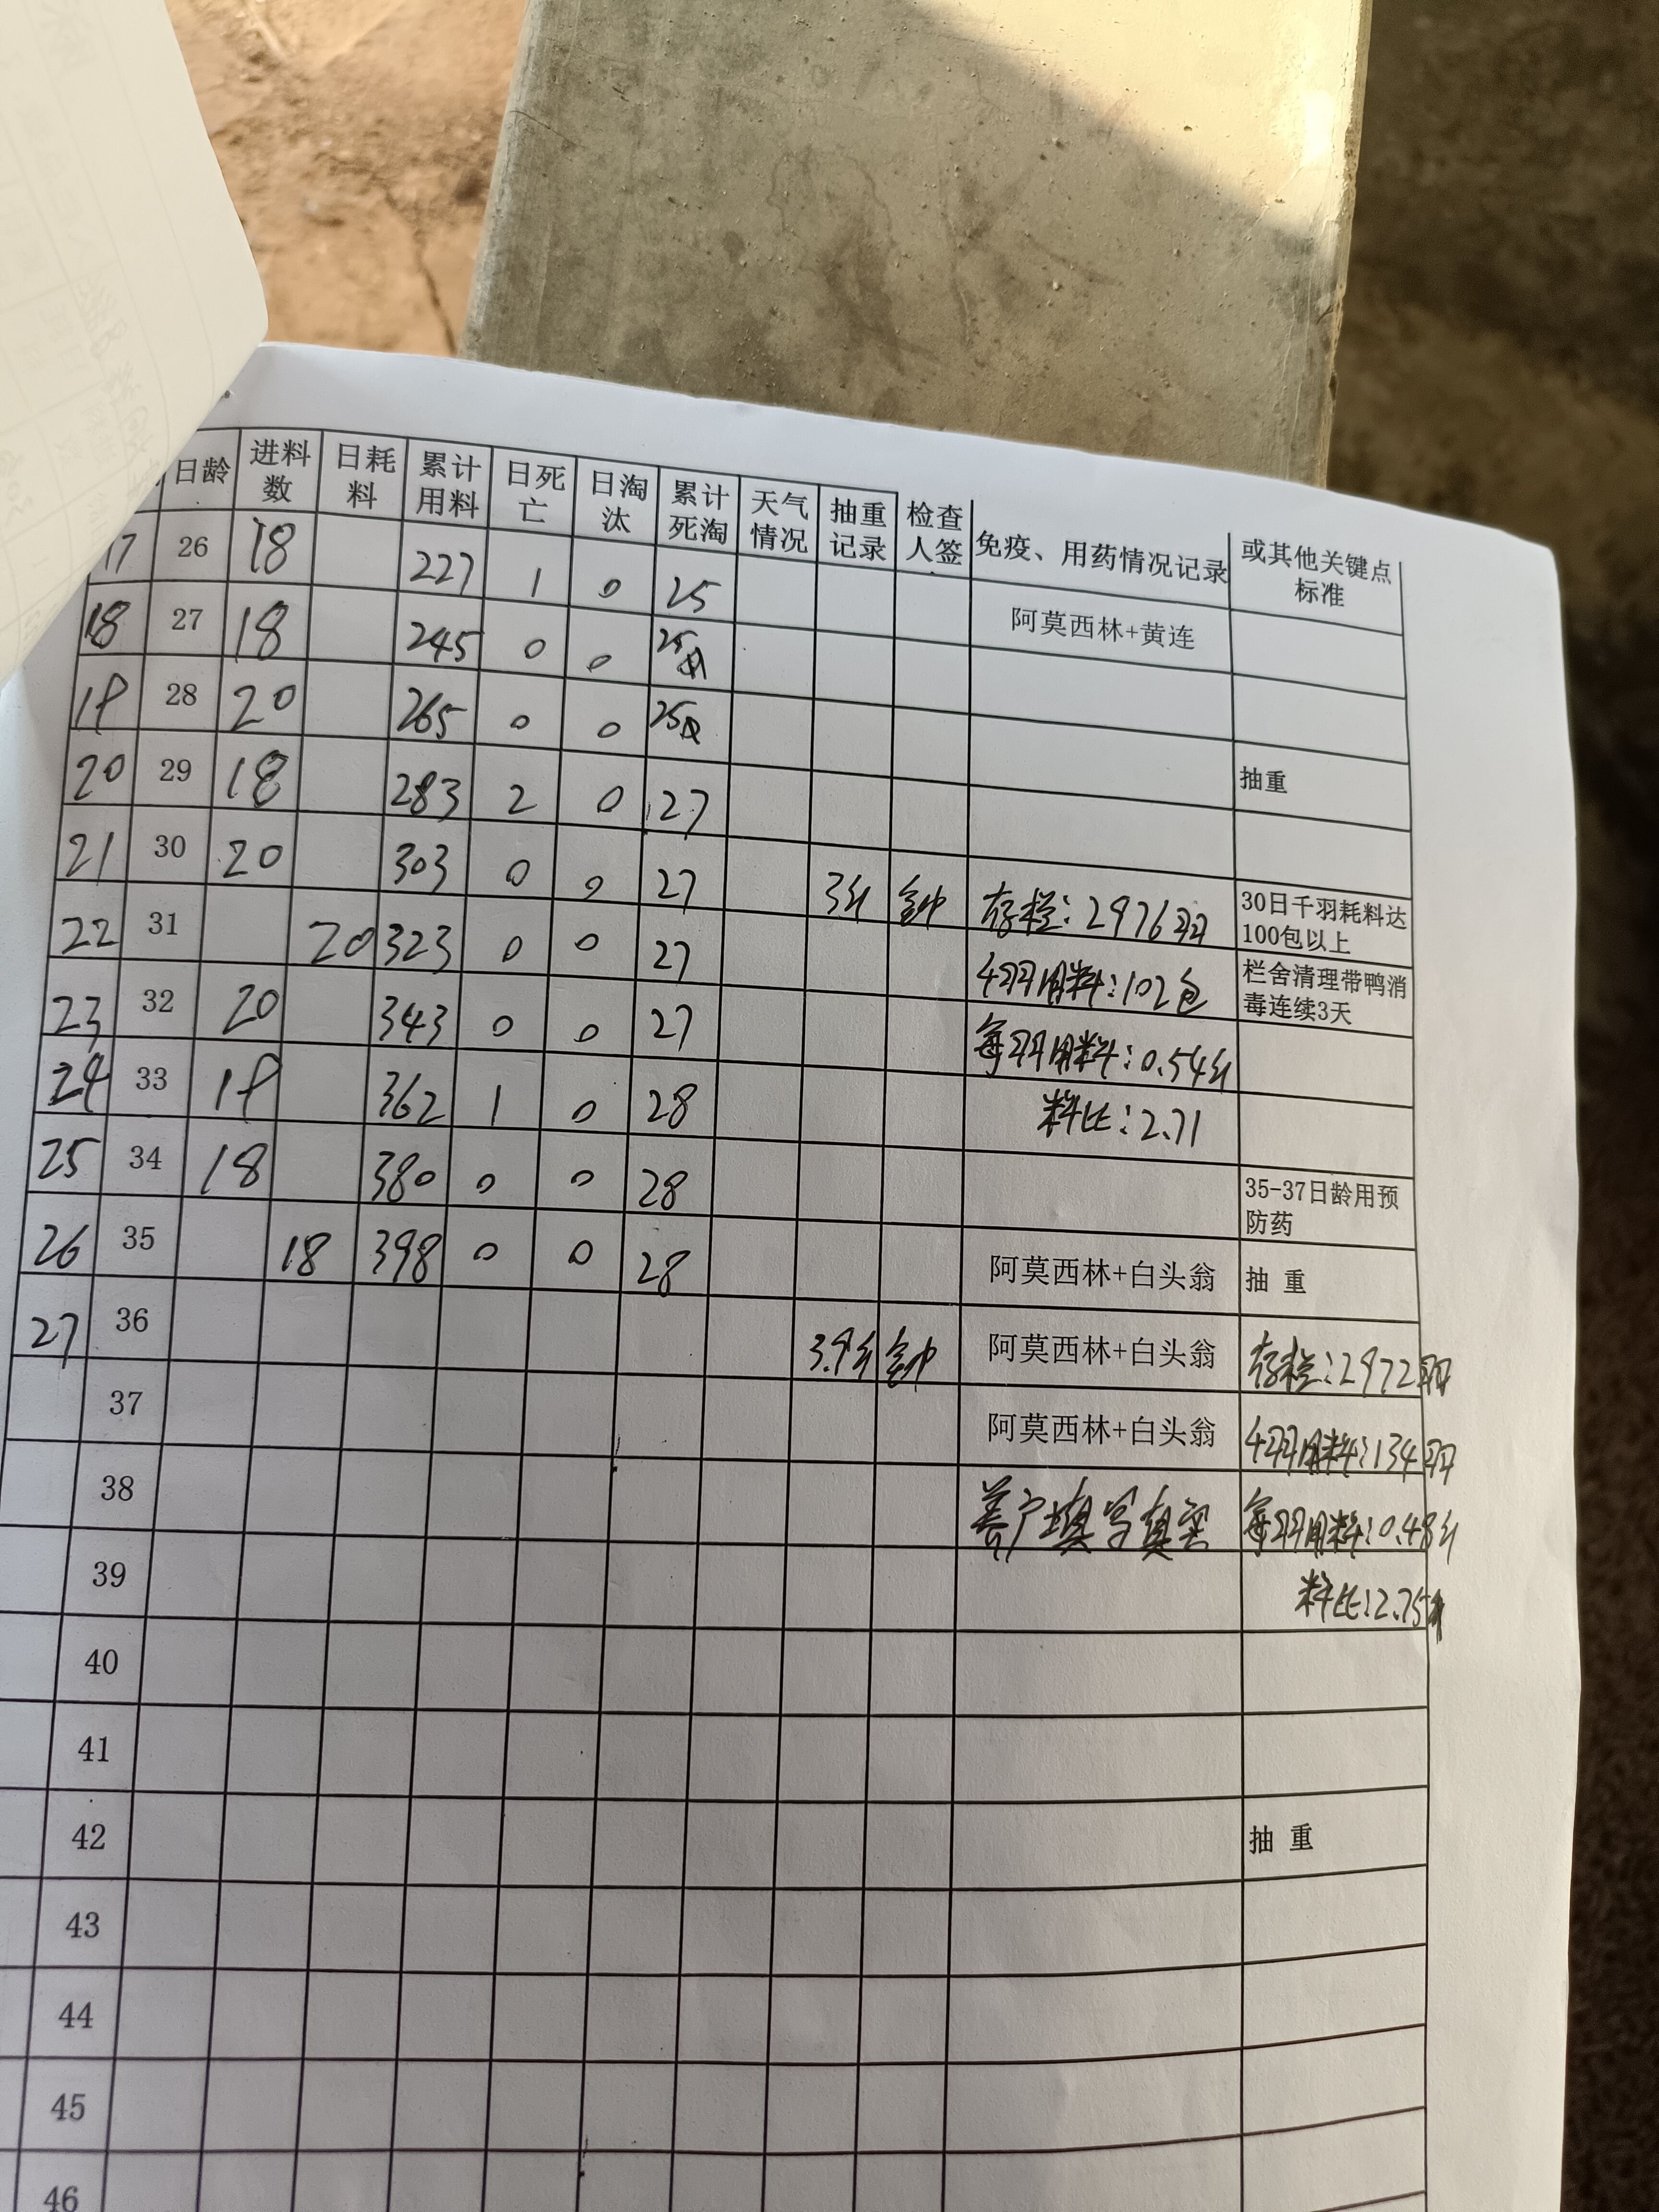 日龄 进料数 日耗料 累计用料 日死亡 日淘汰 累计死淘 天气情况 抽重记录 检查人签 免疫、用药情况记录 或其他关键点标准
17 26 18 227 1 0 25
阿莫西林+黄连
18 27 18 245 0 0 25
19 28 20 265 0 0 25
抽重
20 29 18 283 2 0 27
21 30 20 303 0 0 27 3斤 钟 存栏:2976羽 30日千羽耗料达100包以上
22 31 20 323 0 0 27 羽用料:102包 栏舍清理带鸭消毒连续3天
23 32 20 343 0 0 27 每羽用料:0.54斤
24 33 19 362 1 0 28 料比:2.71
25 34 18 380 0 0 28 35-37日龄用预防药
26 35 18 398 0 0 28 阿莫西林+白头翁 抽 重
27 36 3.9斤 钟 阿莫西林+白头翁 存栏:2972羽
37 阿莫西林+白头翁 羽用料:134羽
38 养户填写真实 每羽用料:0.48斤
39 料比:2.75
40
41
42 抽 重
43
44
45
46